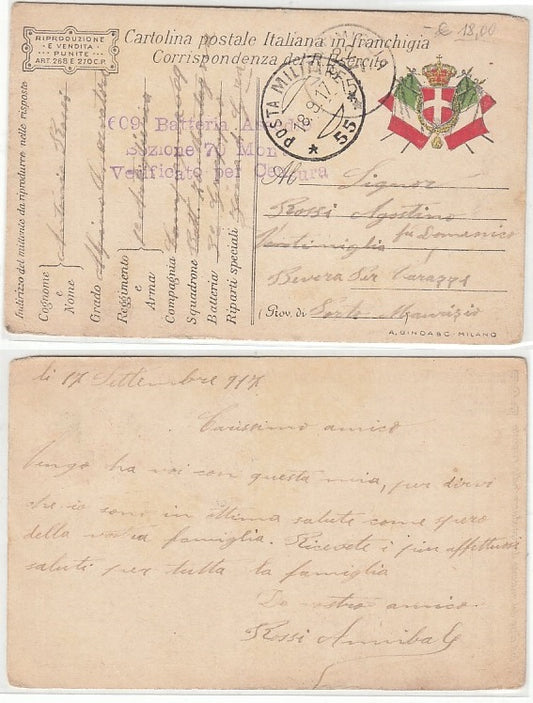 - £ 18,00
RIPRODUZIONE
E VENDITA
PUNITE
ART. 268 E 270 C.P.
Cartolina postale Italiana in franchigia
Corrispondenza del R. Esercito
POSTA MILITARE
18.9.17
* 55 *
609 Batteria Ass
Sezione 70 Mon
Verificato per Censura
Indirizzo del mittente da riprodurre nelle risposte
Cognome
e
Nome
Grado
Reggimento
e
Arma
Compagnia
Squadrone
Batteria
Riparti speciali
Al Signor
Rossi Agostino
fu Domenico
Ventimiglia
Bevera per
(Prov. di Porto Maurizio
A. GINDA & C - MILANO
li 17 Settembre 917
Carissimo amico
Vengo ha voi con questa mia, per dirvi
che io sono in ottima salute come spero
della vostra famiglia. Ricevete i piu affettuosi
saluti per tutta la famiglia
Do vostro amico
Rossi Annibale